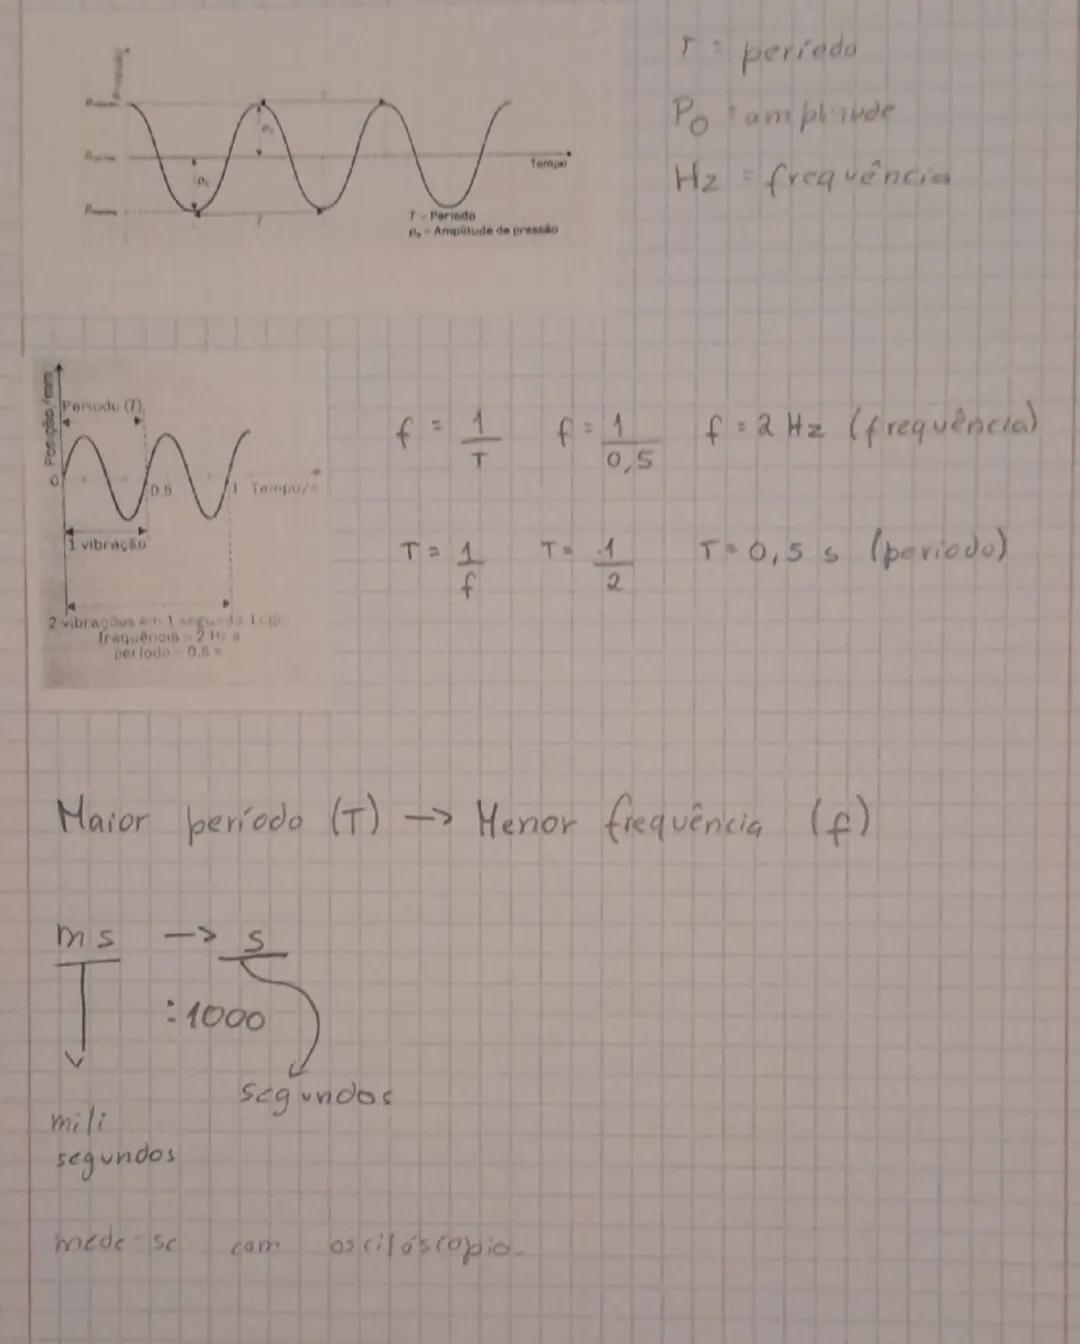 T = período
P₀ = amplitude
Hz = frequência
Tempo
T - Período
p₀ - Amplitude de pressão
f = 1/T f = 1/0,5 f = 2 Hz (frequência)
T = 1/f T = 1/2 T = 0,5 s (periodo)
Posição/mm
Período (T)
0 0.5 1 Tempo/s
1 vibração
2 vibrações em 1 segundo. Logo
frequência = 2 Hz e
período = 0.5 s
Maior período (T) -> Menor frequência (f)
ms -> s
:1000
segundos
mili
segundos
mede-se com osciloscópio.